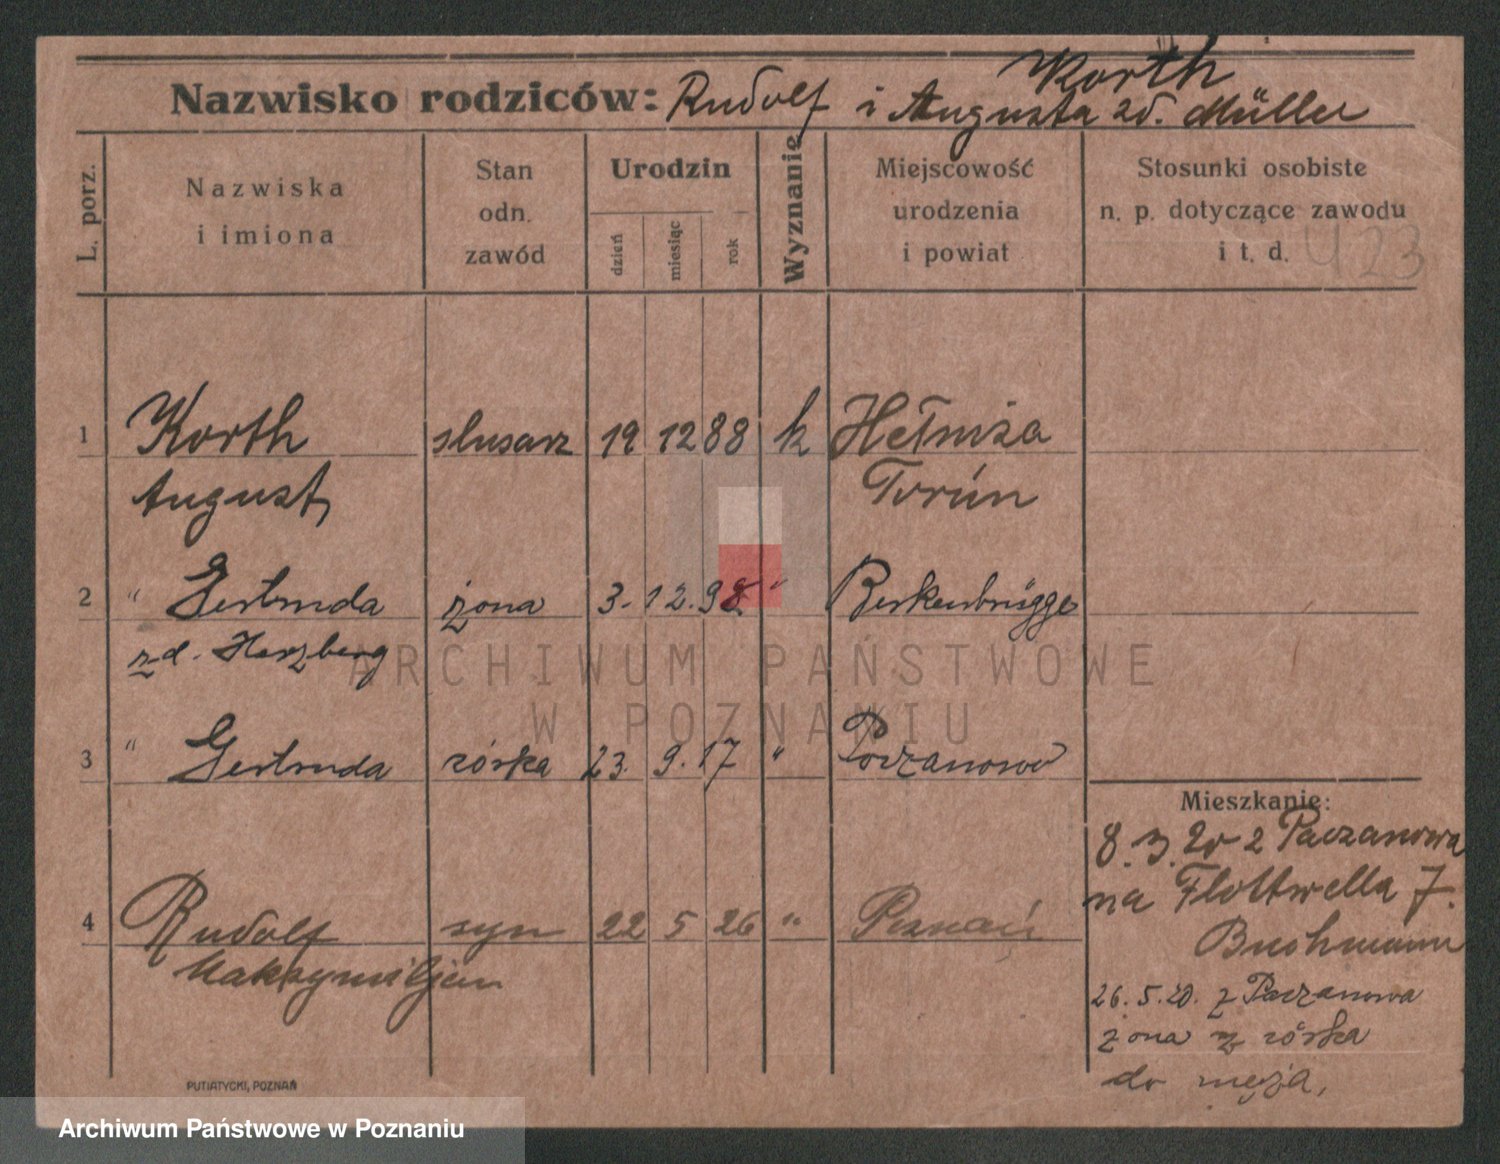 Korth
Nazwisko rodziców: Rudolf i Augusta zd. Müller
L. porz.
Nazwiska
i imiona
Stan
odn.
zawód
Urodzin
dzień
miesiąc
rok
Wyznanie
Miejscowość
urodzenia
i powiat
Stosunki osobiste
n. p. dotyczące zawodu
i t. d.
423
1 Korth slusarz 19 12 88 k Hełmża
August Toruń
2 " Gertruda żona 3. 12. 98 " Berkenbrügge
zd. Herzberg
3 " Gertruda córka 23. 9. 17 " Poczanowo
4 Rudolf syn 22 5 26 " Poznań
Maksymiljan
Mieszkanie:
8. 3. 20 z Paczanowa
na Flottwella 7.
Buchmann
26. 5. 20. z Paczanowa
żona z córka
do męża,
PUTIATYCKI, POZNAŃ
ARCHIWUM PAŃSTWOWE
W POZNANIU
Archiwum Państwowe w Poznaniu